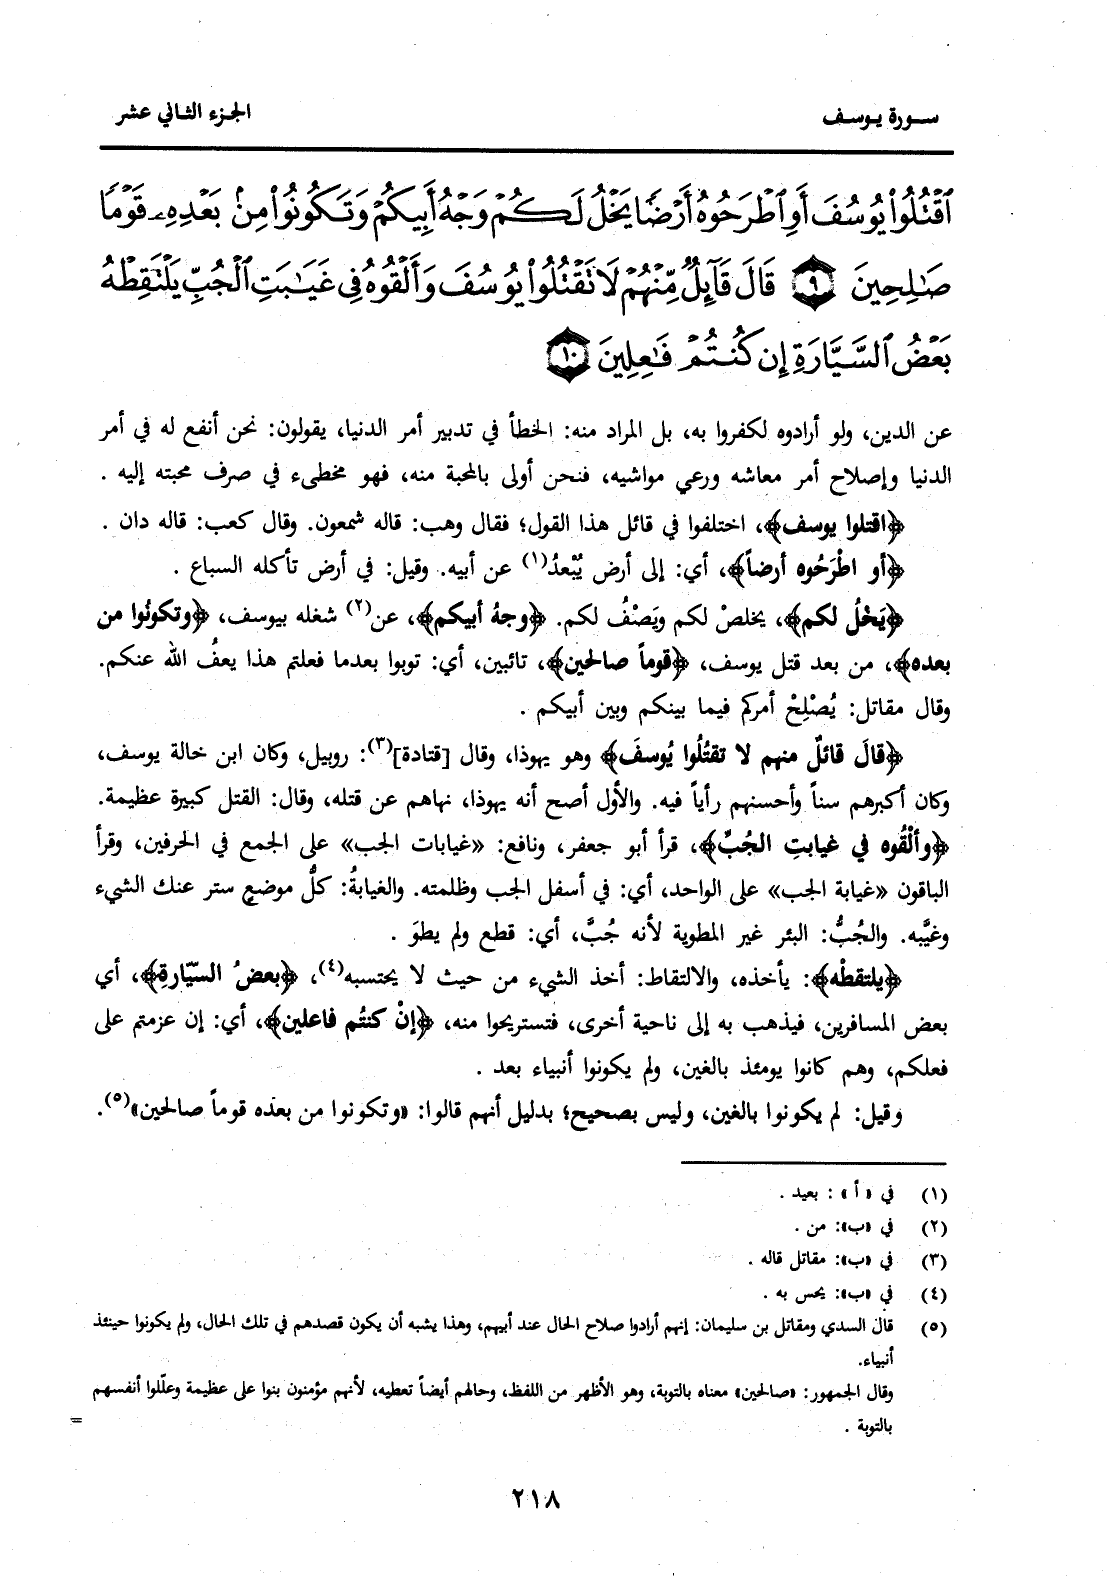 سورة يوسف
الجزء الثاني عشر
ٱقْتُلُوا۟ يُوسُفَ أَوِ ٱطْرَحُوهُ أَرْضًا يَخْلُ لَكُمْ وَجْهُ أَبِيكُمْ وَتَكُونُوا۟ مِنۢ بَعْدِهِۦ قَوْمًا
صَٰلِحِينَ ٩ قَالَ قَآئِلٌ مِّنْهُمْ لَا تَقْتُلُوا۟ يُوسُفَ وَأَلْقُوهُ فِى غَيَٰبَتِ ٱلْجُبِّ يَلْتَقِطْهُ
بَعْضُ ٱلسَّيَّارَةِ إِن كُنتُمْ فَٰعِلِينَ ١٠
عن الدين، ولو أرادوه لكفروا به، بل المراد منه: الخطأ في تدبير أمر الدنيا، يقولون: نحن أنفع له في أمر
الدنيا وإصلاح أمر معاشه ورعي مواشيه، فنحن أولى بالمحبة منه، فهو مخطىء في صرف محبته إليه .
﴿اقتلوا يوسف﴾، اختلفوا في قائل هذا القول؛ فقال وهب: قاله شمعون. وقال كعب: قاله دان .
﴿أو اطْرَحُوه أرضاً﴾، أي: إلى أرض يُبْعدُ(١) عن أبيه. وقيل: في أرض تأكله السباع .
﴿يَخْلُ لكم﴾، يخلصْ لكم ويَصْفُ لكم. ﴿وجهُ أبيكم﴾، عن(٢) شغله بيوسف، ﴿وتكونُوا من
بعده﴾، من بعد قتل يوسف، ﴿قوماً صالحين﴾، تائبين، أي: توبوا بعدما فعلتم هذا يعفُ الله عنكم.
وقال مقاتل: يُصْلِحْ أمركم فيما بينكم وبين أبيكم .
﴿قالَ قائلٌ منهم لا تقتُلُوا يُوسفَ﴾ وهو يهوذا، وقال [قتادة](٣): روبيل، وكان ابن خالة يوسف،
وكان أكبرهم سناً وأحسنهم رأياً فيه. والأول أصح أنه يهوذا، نهاهم عن قتله، وقال: القتل كبيرة عظيمة.
﴿وألْقُوه في غيابتِ الجُبِّ﴾، قرأ أبو جعفر، ونافع: «غيابات الجب» على الجمع في الحرفين، وقرأ
الباقون «غيابة الجب» على الواحد، أي: في أسفل الجب وظلمته. والغيابةُ: كلُّ موضعٍ ستر عنك الشيء
وغيَّبه. والجُبُّ: البئر غير المطوية لأنه جُبَّ، أي: قطع ولم يطوَ .
﴿يلتقطْه﴾: يأخذه، والالتقاط: أخذ الشيء من حيث لا يحتسبه(٤)، ﴿بعضُ السيّارةِ﴾، أي
بعض المسافرين، فيذهب به إلى ناحية أخرى، فتستريحوا منه، ﴿إنْ كنتُم فاعلين﴾، أي: إن عزمتم على
فعلكم، وهم كانوا يومئذ بالغين، ولم يكونوا أنبياء بعد .
وقيل: لم يكونوا بالغين، وليس بصحيح؛ بدليل أنهم قالوا: «وتكونوا من بعده قوماً صالحين»(٥).
(١) في «أ» : بعيد .
(٢) في «ب»: من .
(٣) في «ب»: مقاتل قاله .
(٤) في «ب»: يحس به .
(٥) قال السدي ومقاتل بن سليمان: إنهم أرادوا صلاح الحال عند أبيهم، وهذا يشبه أن يكون قصدهم في تلك الحال، ولم يكونوا حينئذ
أنبياء.
وقال الجمهور: «صالحين» معناه بالتوبة، وهو الأظهر من اللفظ، وحالهم أيضاً تعطيه، لأنهم مؤمنون بنوا على عظيمة وعلّلوا أنفسهم
بالتوبة .
=
٢١٨